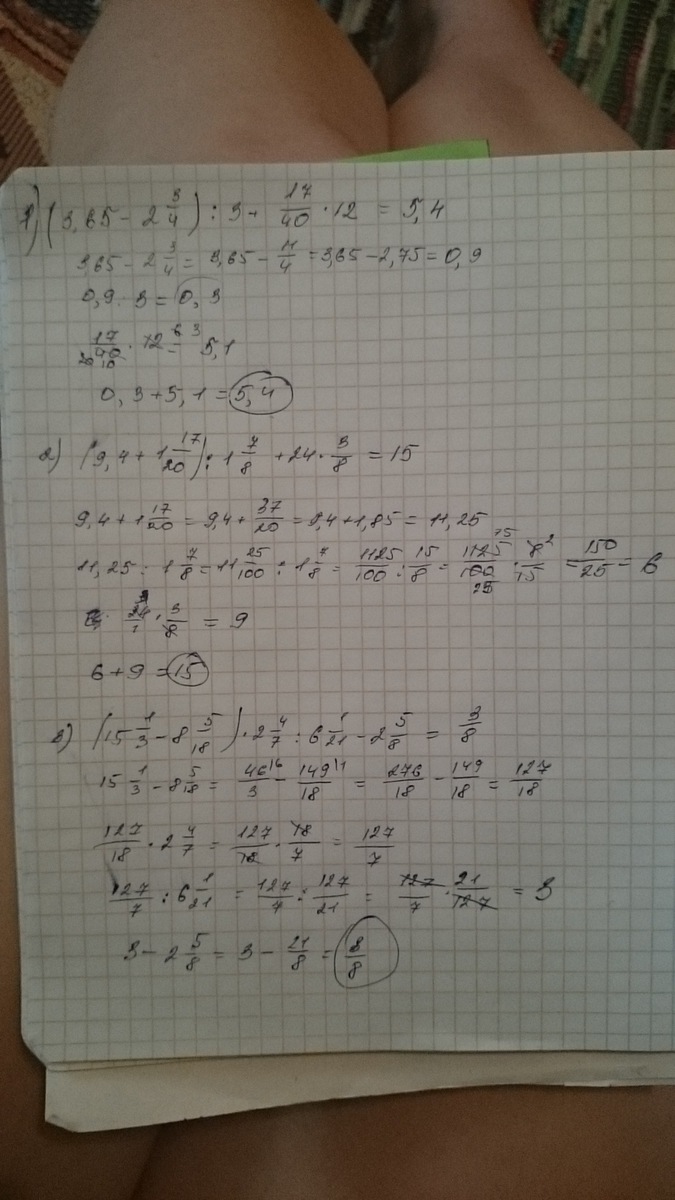 1) (3,65 - 2 3/4) : 3 + 17/40 · 12 = 5,4
3,65 - 2 3/4 = 3,65 - 11/4 = 3,65 - 2,75 = 0,9
0,9 : 3 = 0,3
17/40 · 12 = 5,1
0,3 + 5,1 = 5,4
2) (9,4 + 1 17/20) : 1 7/8 + 24 · 3/8 = 15
9,4 + 1 17/20 = 9,4 + 37/20 = 9,4 + 1,85 = 11,25
11,25 : 1 7/8 = 11 25/100 : 1 7/8 = 1125/100 : 15/8 = 1125/100 · 8/15 = 150/25 = 6
24/1 · 3/8 = 9
6 + 9 = 15
3) (15 1/3 - 8 5/18) · 2 4/7 : 6 1/21 - 2 5/8 = 3/8
15 1/3 - 8 5/18 = 46/3 - 149/18 = 276/18 - 149/18 = 127/18
127/18 · 2 4/7 = 127/18 · 18/7 = 127/7
127/7 : 6 1/21 = 127/7 : 127/21 = 127/7 · 21/127 = 3
3 - 2 5/8 = 3 - 21/8 = 3/8